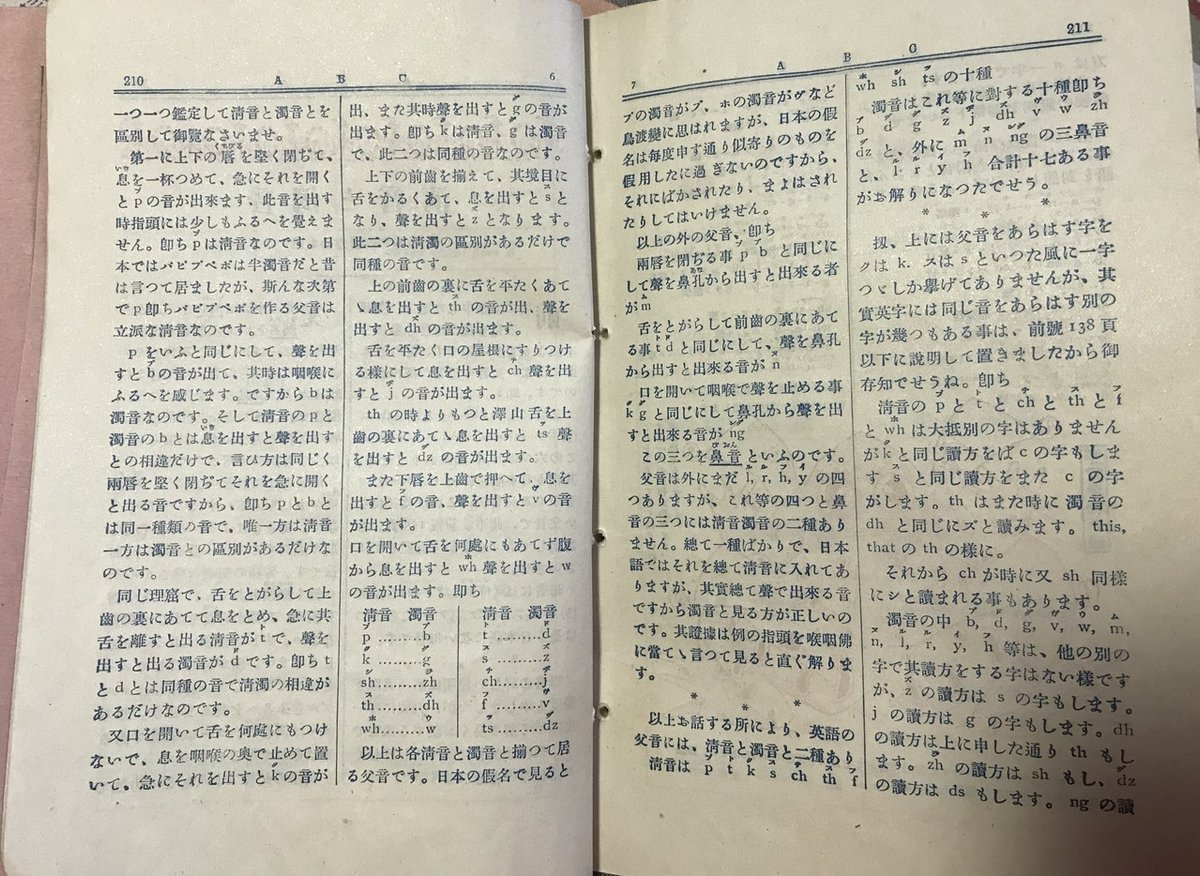 210 A B C 6
一つ一つ鑑定して淸音と濁音とを
區別して御覽なさいませ。
第一に上下の唇を堅く閉ぢて、
息を一杯つめて、急にそれを開く
とpの音が出來ます、此音を出す
時指頭には少しもふるへを覺えま
せん。卽ちpは淸音なのです。日
本ではパピプペポは半濁音だと昔
は言つて居ましたが、斯んな次第
でp卽ちパピプペポを作る父音は
立派な淸音なのです。
pをいふと同じにして、聲を出
すとbの音が出て、其時は咽喉に
ふるへを感じます。ですからbは
濁音なのです。そして淸音のpと
濁音のbとは息を出すと聲を出す
との相違だけで、言ひ方は同じく
兩唇を堅く閉ぢてそれを急に開く
と出る音ですから、卽ちpとbと
は同一種類の音で、唯一方は淸音
一方は濁音との區別があるだけな
のです。
同じ理窟で、舌をとがらして上
齒の裏にあてて息をとめ、急に其
舌を離すと出る淸音がtで、聲を
出すと出る濁音がdです。卽ちt
とdとは同種の音で淸濁の相違が
あるだけなのです。
又口を開いて舌を何處にもつけ
ないで、息を咽喉の奧で止めて置
いて、急にそれを出すとkの音が
出、また其時聲を出すとgの音が
出ます。卽ちkは淸音、gは濁音
で、此二つは同種の音なのです。
上下の前齒を揃えて、其境目に
舌をかるくあて、息を出すとsと
なり、聲を出すとzとなります。
此二つは淸濁の區別があるだけで
同種の音です。
上の前齒の裏に舌を平たくあて
ゝ息を出すと th の音が出、聲を
出すと dh の音が出ます。
舌を平たく口の屋根にすりつけ
る樣にして息を出すと ch 聲を出
すと j の音が出ます。
th の時よりもつと澤山舌を上
齒の裏にあてゝ息を出すと ts 聲
を出すと dz の音が出ます。
また下唇を上齒で押へて、息を
出すと f の音、聲を出すと v の音
が出ます。
口を開いて舌を何處にもあてず腹
から息を出すと wh 聲を出すと w
の音が出ます。卽ち
淸音 濁音 淸音 濁音
p………b t………d
k………g s………z
sh………zh ch………j
th………dh f………v
wh………w ts………dz
以上は各淸音と濁音と揃つて居
る父音です。日本の假名で見ると
7 A B C 211
プの濁音がブ、ホの濁音がヴなど
鳥渡變に思はれますが、日本の假
名は每度申す通り似寄りのものを
假用したに過ぎないのですから、
それにばかされたり、まよはされ
たりしてはいけません。
以上の外の父音、卽ち
兩唇を閉ぢる事 p b と同じに
して聲を鼻孔から出すと出來る者
が m
舌をとがらして前齒の裏にあて
る事 t d と同じにして、聲を鼻孔
から出すと出來る音が n
口を開いて咽喉で聲を止める事
k g と同じにして鼻孔から聲を出
すと出來る音が ng
この三つを鼻音といふのです。
父音は外にまだ l, r, h, y の四
つありますが、これ等の四つと鼻
音の三つには淸音濁音の二種あり
ません。總て一種ばかりで、日本
語ではそれを總て淸音に入れてあ
りますが、其實總て聲で出來る音
ですから濁音と見る方が正しいの
です。其證據は例の指頭を喉咽佛
に當てゝ言つて見ると直ぐ解りま
す。
* * *
以上お話する所により、英語の
父音には、淸音と濁音と二種あり
淸音は p t k s ch th f
wh sh ts の十種
濁音はこれ等に對する十種卽ち
b d g z j dh v w zh
dz と、外に m n ng の三鼻音
と、l r y h 合計十七ある事
がお解りになつたでせう。
* * *
扨、上には父音をあらはす字を
クは k. スは s といつた風に一字
づゝしか擧げてありませんが、其
實英字には同じ音をあらはす別の
字が幾つもある事は、前號138頁
以下に說明して置きましたから御
存知でせうね。卽ち
淸音の p と t と ch と th と f
と wh は大抵別の字はありません
が k と同じ讀方をば c の字もしま
す s と同じ讀方をまた c の字
がします。th はまた時に濁音の
dh と同じにズと讀みます。this,
that の th の樣に。
それから ch が時に又 sh 同樣
にシと讀まれる事もあります。
濁音の中 b, d, g, v, w, m,
n, l, r, y, h 等は、他の別の
字で其讀方をする字はない樣です
が、z の讀方は s の字もします。
j の讀方は g の字もします。dh
の讀方は上に申した通り th もし
ます。zh の讀方は sh もし、dz
の讀方は ds もします。ng の讀